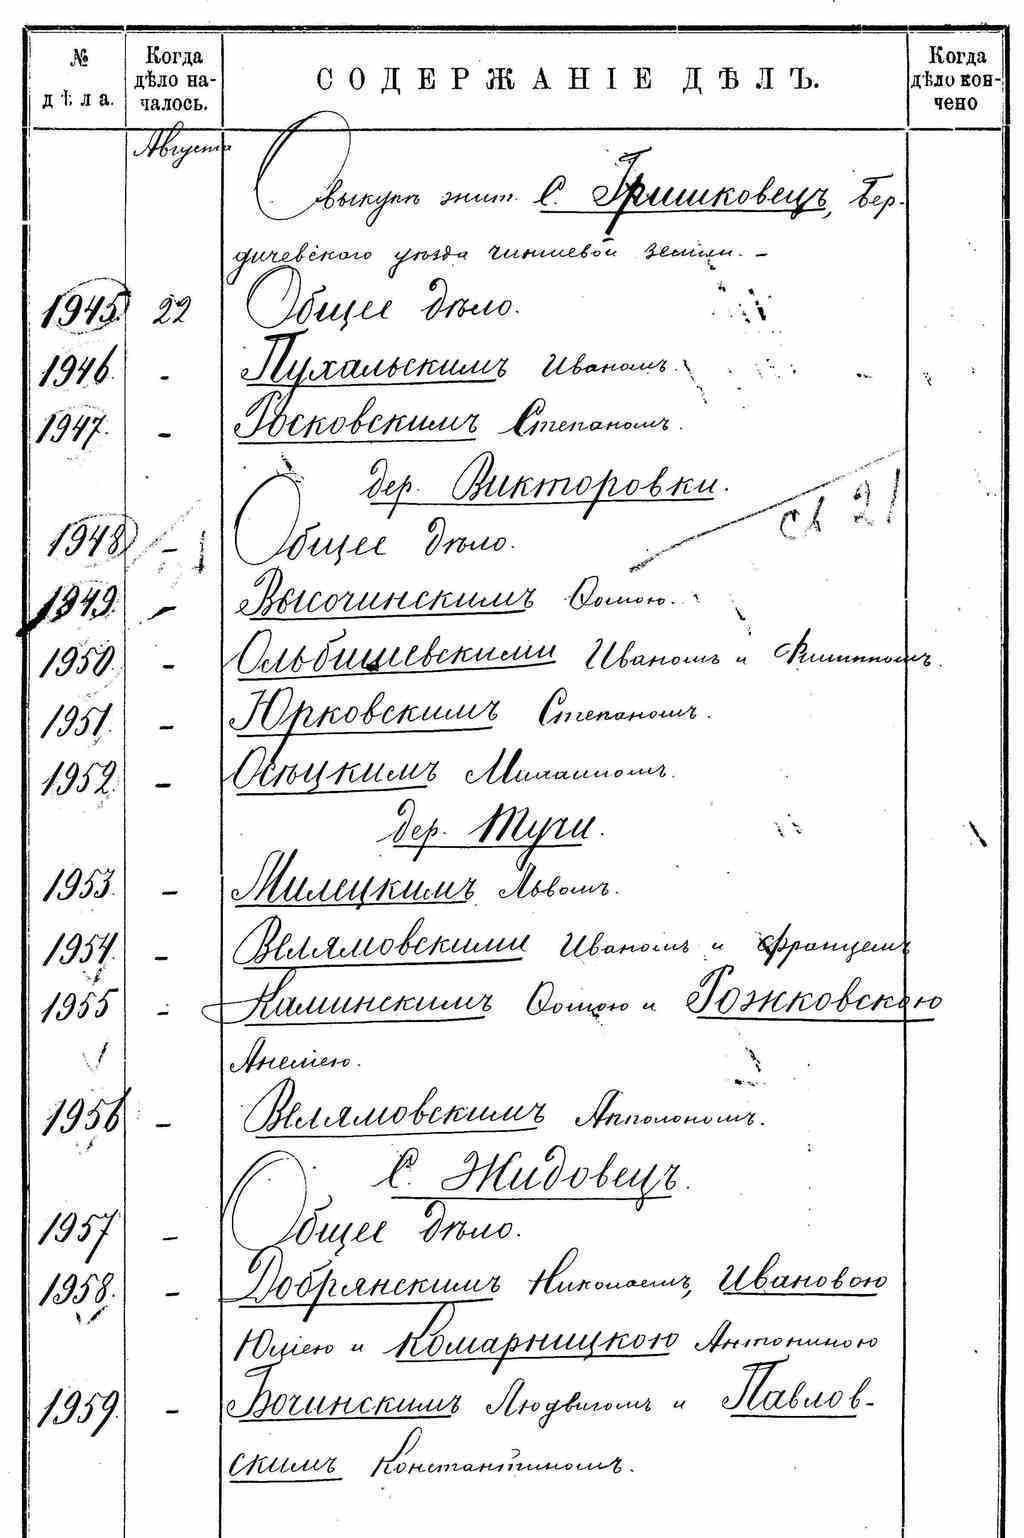 № дѣла. Когда дѣло началось. СОДЕРЖАНІЕ ДѢЛЪ. Когда дѣло кончено
Августа
О выкупѣ жит. С. Гришковецъ, Бер-
дичевскаго уѣзда чиншевой земли. –
1945 22 Общее дѣло.
1946. - Пухальскимъ Иваномъ.
1947. - Росковскимъ Степаномъ.
дер. Викторовки.
св 21
1948 - Общее дѣло.
1949. - Высочинскимъ Ѳомою.
1950. - Ольбишевскими Иваномъ и Филиппомъ.
1951. - Юрковскимъ Степаномъ.
1952. - Осѣцкимъ Михаиломъ.
дер. Тучи.
1953. - Милецкимъ Львомъ.
1954. - Велямовскими Иваномъ и Францемъ
1955 - Каминскимъ Ѳомою и Рожковскою
Анелею.
1956 - Велямовскимъ Апполономъ.
С. Жидовецъ.
1957 - Общее дѣло.
1958. - Добрянскимъ Николаемъ, Ивановою
Юліею и Комарницкою Антониною
1959. - Бочинскимъ Людвигомъ и Павлов-
скимъ Константиномъ.